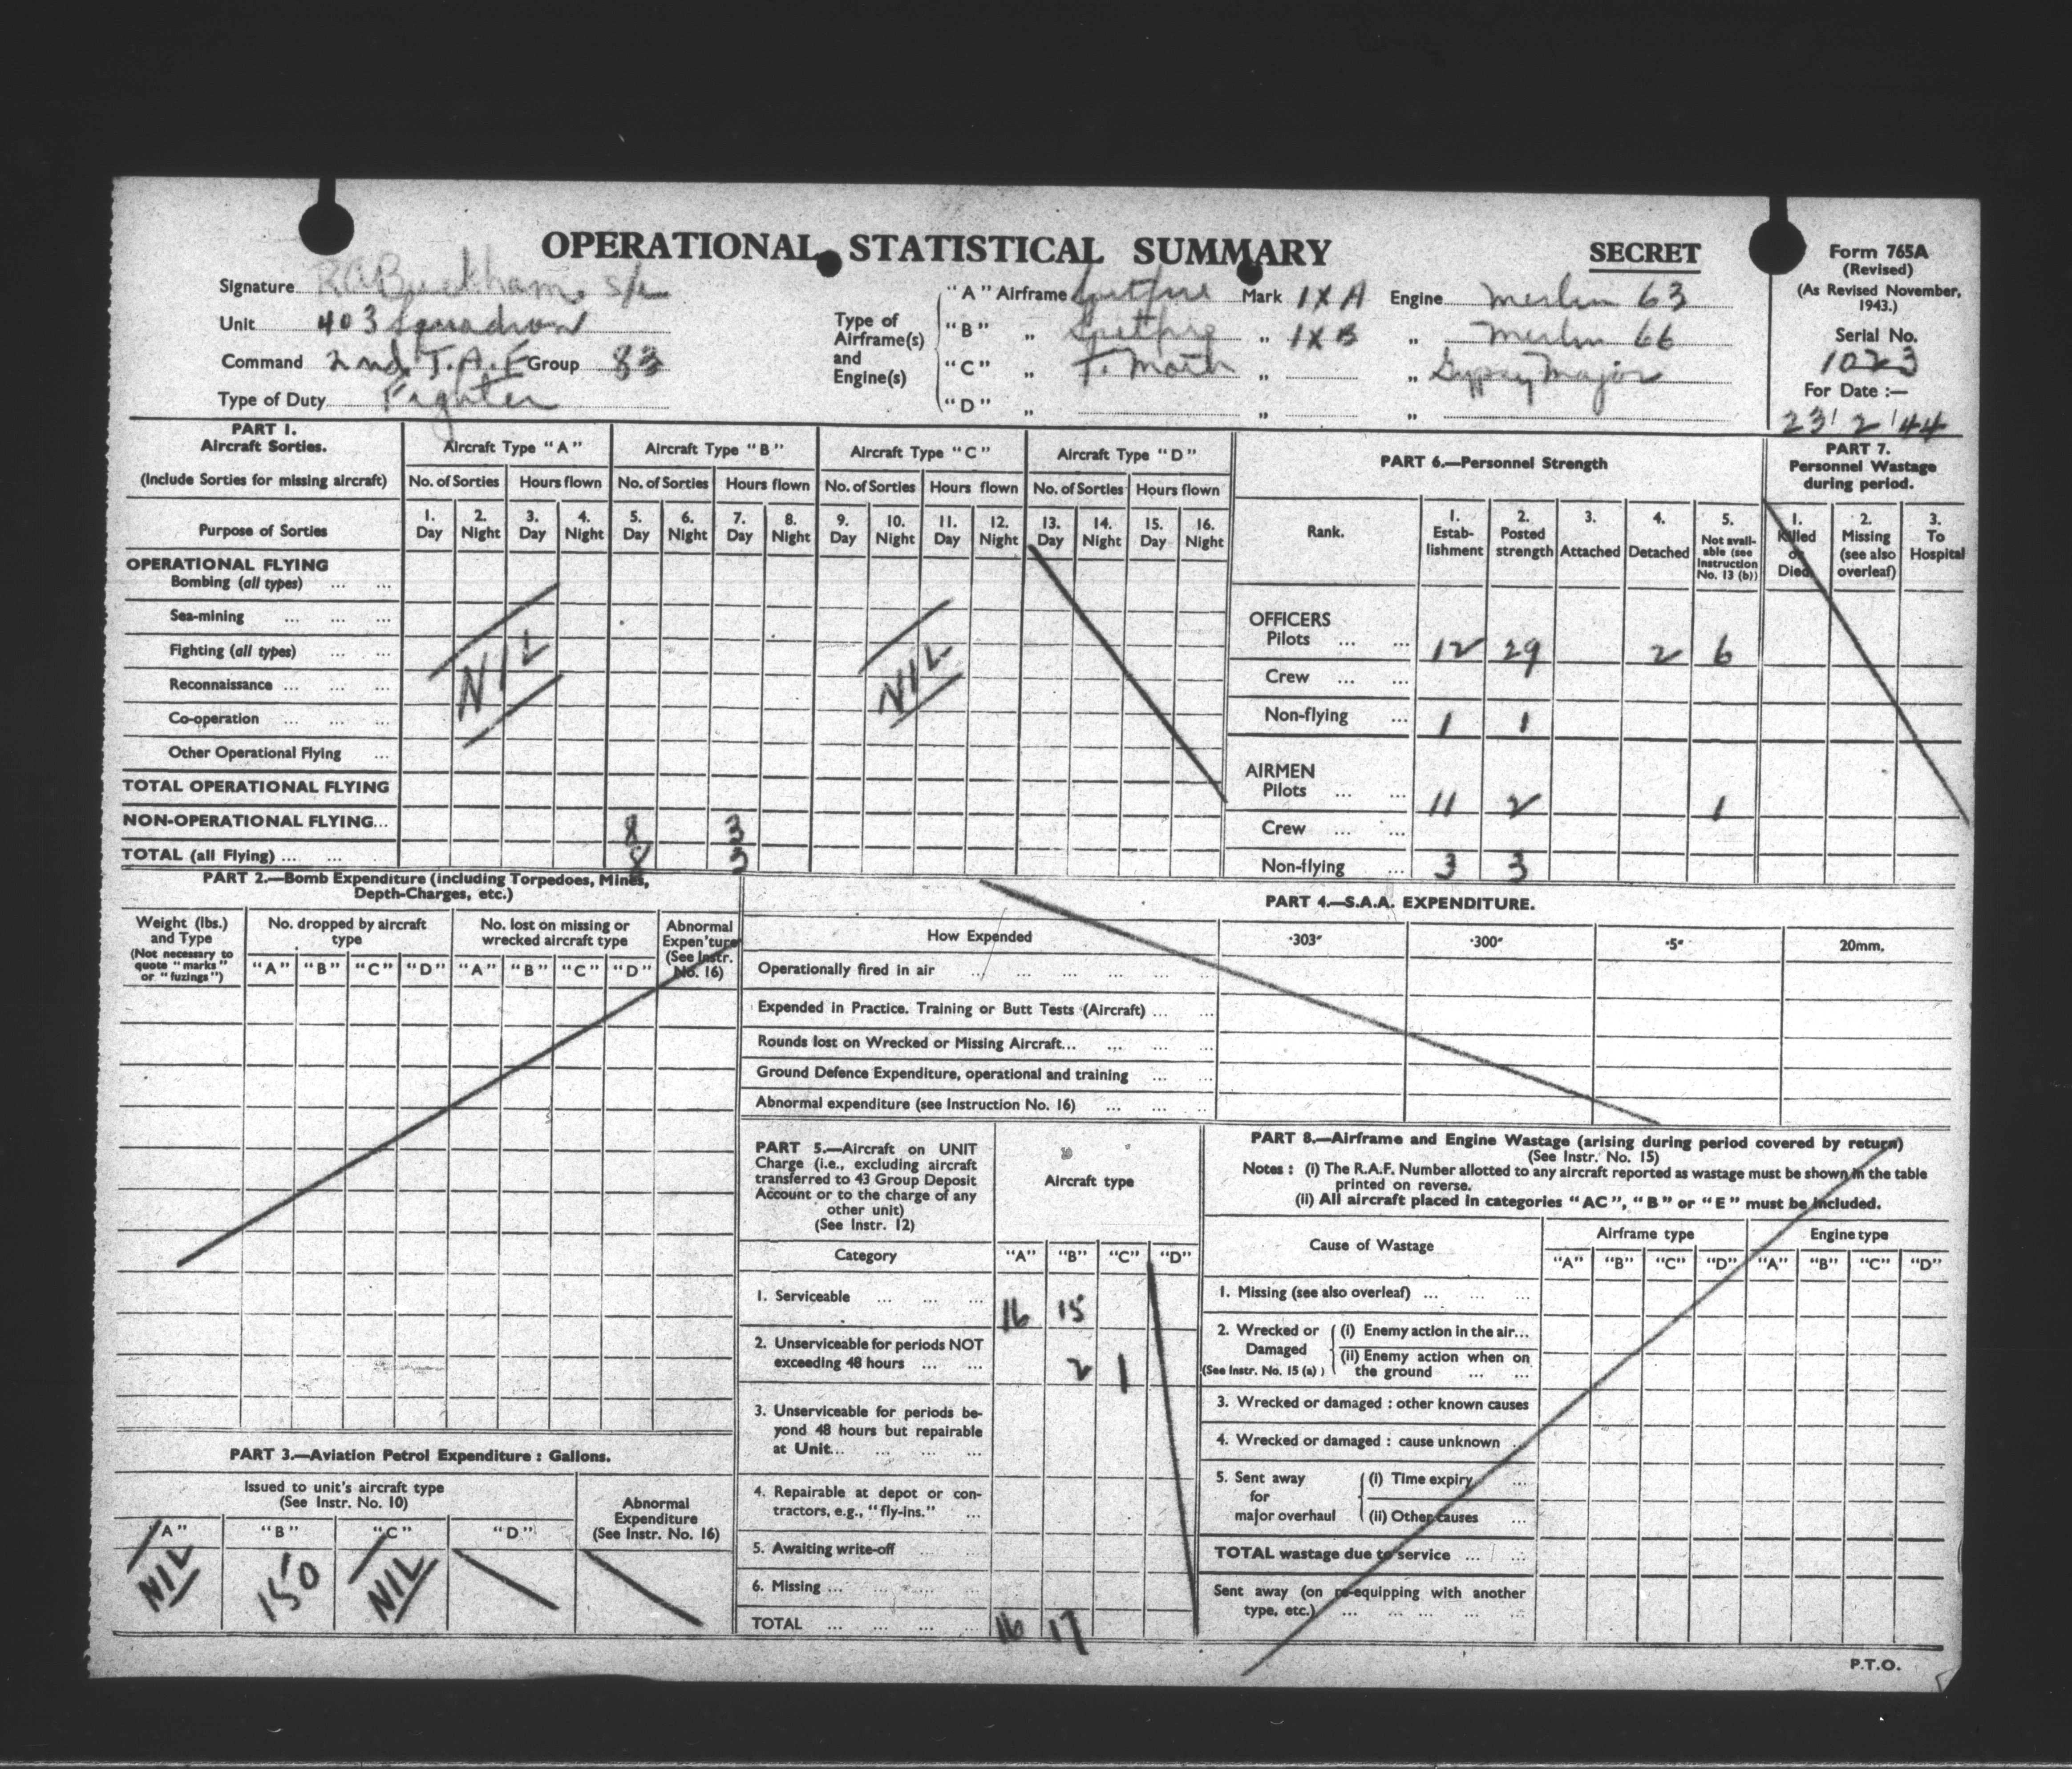 OPERATIONAL STATISTICAL SUMMARY
SECRET
Form 765A
(Revised)
(As Revised November, 1943.)
Serial No.
1023
For Date :—
23 2 44
Signature R.A. Buckham. S/L
Unit 403 Squadron
Command 2nd. T.A.F Group 83
Type of Duty Fighter
Type of Airframe(s) and Engine(s)
"A" Airframe Spitfire Mark IX A Engine Merlin 63
"B" „ Spitfire „ IX B „ Merlin 66
"C" „ T. Moth „ „ Gypsy Major
"D" „ „ „
PART 1.
Aircraft Sorties.
(Include Sorties for missing aircraft)
Purpose of Sorties
Aircraft Type "A" Aircraft Type "B" Aircraft Type "C" Aircraft Type "D"
No. of Sorties Hours flown No. of Sorties Hours flown No. of Sorties Hours flown No. of Sorties Hours flown
1. Day 2. Night 3. Day 4. Night 5. Day 6. Night 7. Day 8. Night 9. Day 10. Night 11. Day 12. Night 13. Day 14. Night 15. Day 16. Night
OPERATIONAL FLYING
Bombing (all types) ... ...
Sea-mining ... ... ...
Fighting (all types) ... ...
Reconnaissance ... ... ...
Co-operation ... ... ...
Other Operational Flying ...
NIL NIL
TOTAL OPERATIONAL FLYING
NON-OPERATIONAL FLYING... 8 3
TOTAL (all Flying) ... ... 8 3
PART 6.—Personnel Strength
Rank.
1. Estab-lishment
2. Posted strength
3. Attached
4. Detached
5. Not avail-able (see Instruction No. 13 (b))
OFFICERS
Pilots ... ... 12 29 2 6
Crew ... ...
Non-flying ... 1 1
AIRMEN
Pilots ... ... 11 2 1
Crew ... ...
Non-flying ... 3 3
PART 7.
Personnel Wastage during period.
1. Killed or Died
2. Missing (see also overleaf)
3. To Hospital
PART 2.—Bomb Expenditure (including Torpedoes, Mines, Depth-Charges, etc.)
Weight (lbs.) and Type
(Not necessary to quote "marks" or "fuzings")
No. dropped by aircraft type
No. lost on missing or wrecked aircraft type
Abnormal Expen'ture (See Instr. No. 16)
"A" "B" "C" "D" "A" "B" "C" "D"
PART 4.—S.A.A. EXPENDITURE.
How Expended ·303" ·300" ·5" 20mm.
Operationally fired in air ... ... ... ... ...
Expended in Practice. Training or Butt Tests (Aircraft) ... ...
Rounds lost on Wrecked or Missing Aircraft... ... ... ...
Ground Defence Expenditure, operational and training ... ...
Abnormal expenditure (see Instruction No. 16) ... ... ...
PART 3.—Aviation Petrol Expenditure : Gallons.
Issued to unit's aircraft type
(See Instr. No. 10)
Abnormal Expenditure
(See Instr. No. 16)
"A" "B" "C" "D"
NIL 150 NIL
PART 5.—Aircraft on UNIT Charge (i.e., excluding aircraft transferred to 43 Group Deposit Account or to the charge of any other unit)
(See Instr. 12)
Aircraft type
Category "A" "B" "C" "D"
1. Serviceable ... ... ... 16 15
2. Unserviceable for periods NOT exceeding 48 hours ... ... 2 1
3. Unserviceable for periods be-yond 48 hours but repairable at Unit... ... ... ...
4. Repairable at depot or con-tractors, e.g., "fly-ins." ...
5. Awaiting write-off ... ...
6. Missing ... ... ... ...
TOTAL ... ... ... ... 16 17
PART 8.—Airframe and Engine Wastage (arising during period covered by return)
(See Instr. No. 15)
Notes : (i) The R.A.F. Number allotted to any aircraft reported as wastage must be shown in the table printed on reverse.
(ii) All aircraft placed in categories "AC", "B" or "E" must be included.
Cause of Wastage
Airframe type Engine type
"A" "B" "C" "D" "A" "B" "C" "D"
1. Missing (see also overleaf) ... ... ...
2. Wrecked or Damaged
(See Instr. No. 15 (a) )
(i) Enemy action in the air...
(ii) Enemy action when on the ground ... ...
3. Wrecked or damaged : other known causes
4. Wrecked or damaged : cause unknown ...
5. Sent away for major overhaul
(i) Time expiry ...
(ii) Other causes ...
TOTAL wastage due to service ... ...
Sent away (on re-equipping with another type, etc.) ... ... ... ... ...
P.T.O.